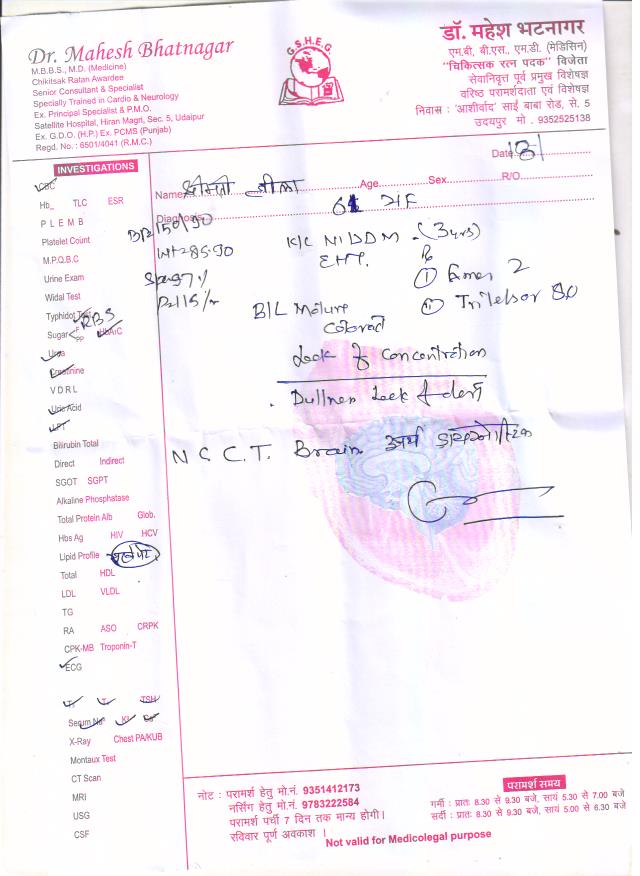 Dr. Mahesh Bhatnagar
M.B.B.S., M.D. (Medicine)
Chikitsak Ratan Awardee
Senior Consultant & Specialist
Specially Trained in Cardio & Neurology
Ex. Principal Specialist & P.M.O.
Satellite Hospital, Hiran Magri, Sec. 5, Udaipur
Ex. G.D.O. (H.P.) Ex. PCMS (Punjab)
Regd. No. : 6501/4041 (R.M.C.)
G.S.H.E.G
डॉ. महेश भटनागर
एम.बी. बी.एस., एम.डी. (मेडिसिन)
"चिकित्सक रत्न पदक" विजेता
सेवानिवृत्त पूर्व प्रमुख विशेषज्ञ
वरिष्ठ परामर्शदाता एवं विशेषज्ञ
निवास : 'आर्शीवाद' साईं बाबा रोड, से. 5
उदयपुर मो. 9352525138
INVESTIGATIONS
CBC
Hb_ TLC ESR
P L E M B
Platelet Count
M.P.Q.B.C
Urine Exam
Widal Test
Typhidot
RBS
Sugar F PP HbA1C
Urea
Creatinine
V D R L
Uric Acid
LFT
Bilirubin Total
Direct Indirect
SGOT SGPT
Alkaline Phosphatase
Total Protein Alb Glob.
Hbs Ag HIV HCV
Lipid Profile
Total HDL
LDL VLDL
TG
RA ASO CRPK
CPK-MB Troponin-T
ECG
TSH
Serum Na+
X-Ray Chest PA/KUB
Montaux Test
CT Scan
MRI
USG
CSF
Date
Name श्रीमती लीला Age Sex R/O
Diagnosis 61
BP 150/90
K/C NIDDM (3 yrs)
EHT.
Rx
B/L Mature
Lack of Concentration
Dullness Lack of
N C C T. Brain
नोट : परामर्श हेतु मो.नं. 9351412173
नर्सिंग हेतु मो.नं. 9783222584
परामर्श पर्ची 7 दिन तक मान्य होगी।
रविवार पूर्ण अवकाश ।
Not valid for Medicolegal purpose
परामर्श समय
गर्मी : प्रातः 8.30 से 9.30 बजे, सायं 5.30 से 7.00 बजे
सर्दी : प्रातः 8.30 से 9.30 बजे, सायं 5.00 से 6.30 बजे